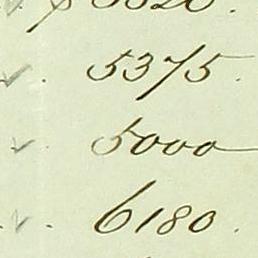 ✓. 5375.
✓. 5000
✓. 6180.